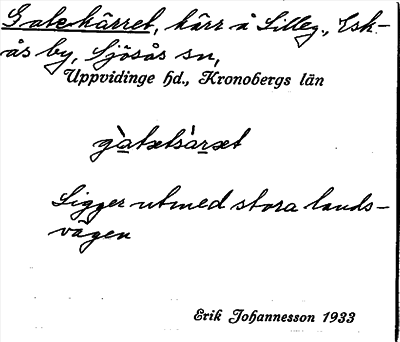 Gatekärret, kärr å Lilleg., Esk-
ås by, Sjösås sn,
Uppvidinge hd., Kronobergs län
gàtətsàrət
Ligger utmed stora lands-
vägen
Erik Johannesson 1933